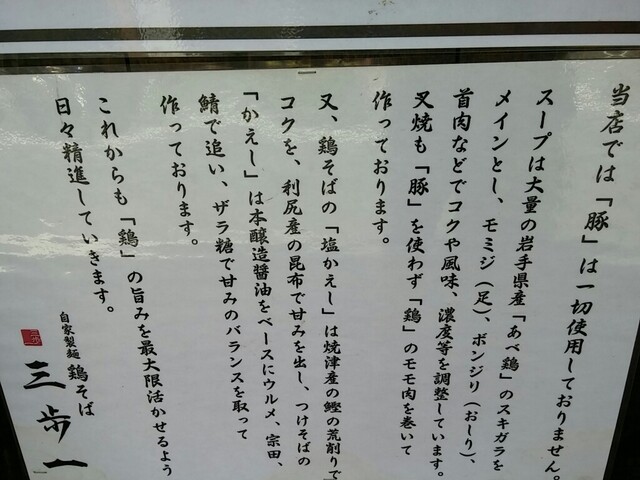 当店では「豚」は一切使用しておりません。
スープは大量の岩手県産「あべ鶏」のスキガラを
メインとし、モミジ（足）、ボンジリ（おしり）、
首肉などでコクや風味、濃度等を調整しています。
叉焼も「豚」を使わず「鶏」のモモ肉を巻いて
作っております。
又、鶏そばの「塩かえし」は焼津産の鰹の荒削りで
コクを、利尻産の昆布で甘みを出し、つけそばの
「かえし」は本醸造醤油をベースにウルメ、宗田、
鯖で追い、ザラ糖で甘みのバランスを取って
作っております。
これからも「鶏」の旨みを最大限活かせるよう
日々精進していきます。
自家製麺 鶏そば
三歩一